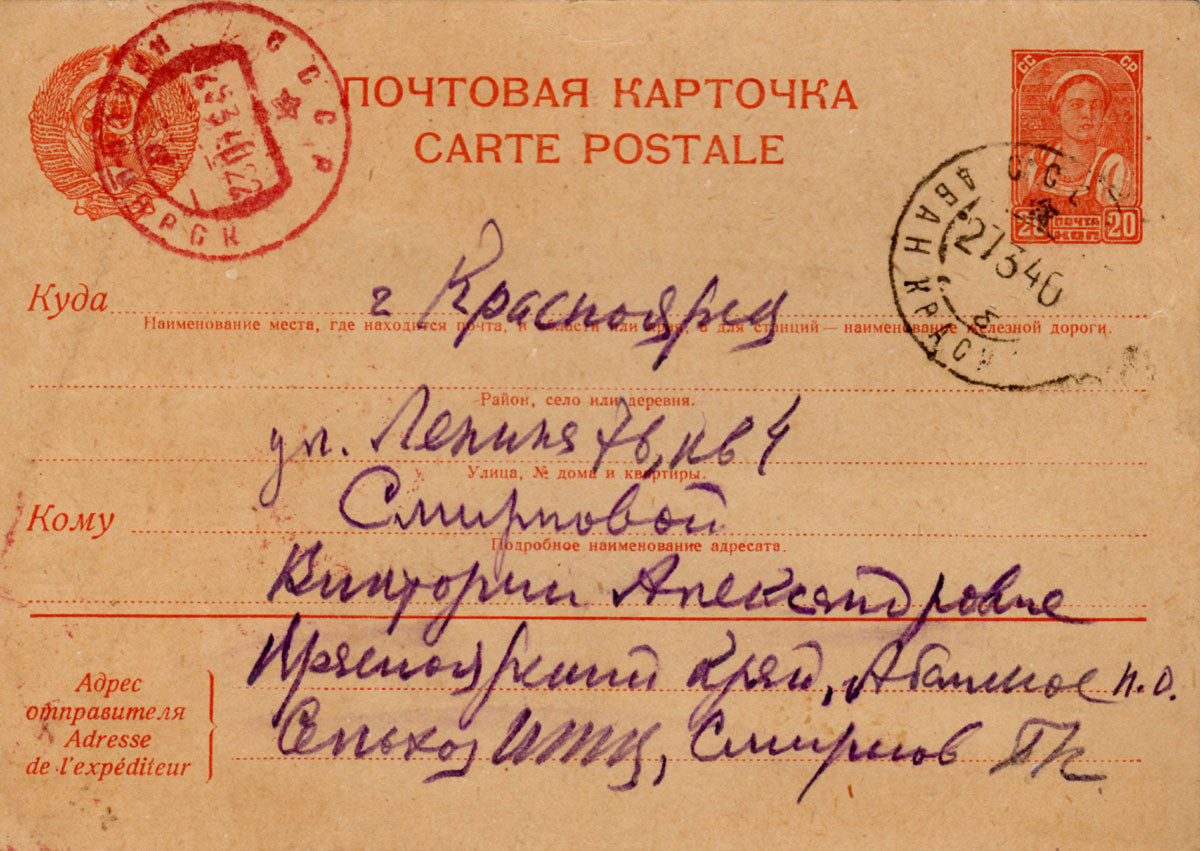 ПОЧТОВАЯ КАРТОЧКА
CARTE POSTALE
СССР
ЯРСК
СС СР
ПОЧТА
20 КОП 20
СССР
АБАН КРАСН
27 3 40
Куда г Красноярск
Наименование места, где находится почта, и области или края, а для станций — наименование железной дороги.
Район, село или деревня.
ул. Ленина 76, кв 4
Улица, № дома и квартиры.
Кому Смирновой
Подробное наименование адресата.
Виктории Александровне
Адрес отправителя
Adresse de l'expéditeur
Красноярский край, Абанское п.о.
Сельхоз ИТК, Смирнов